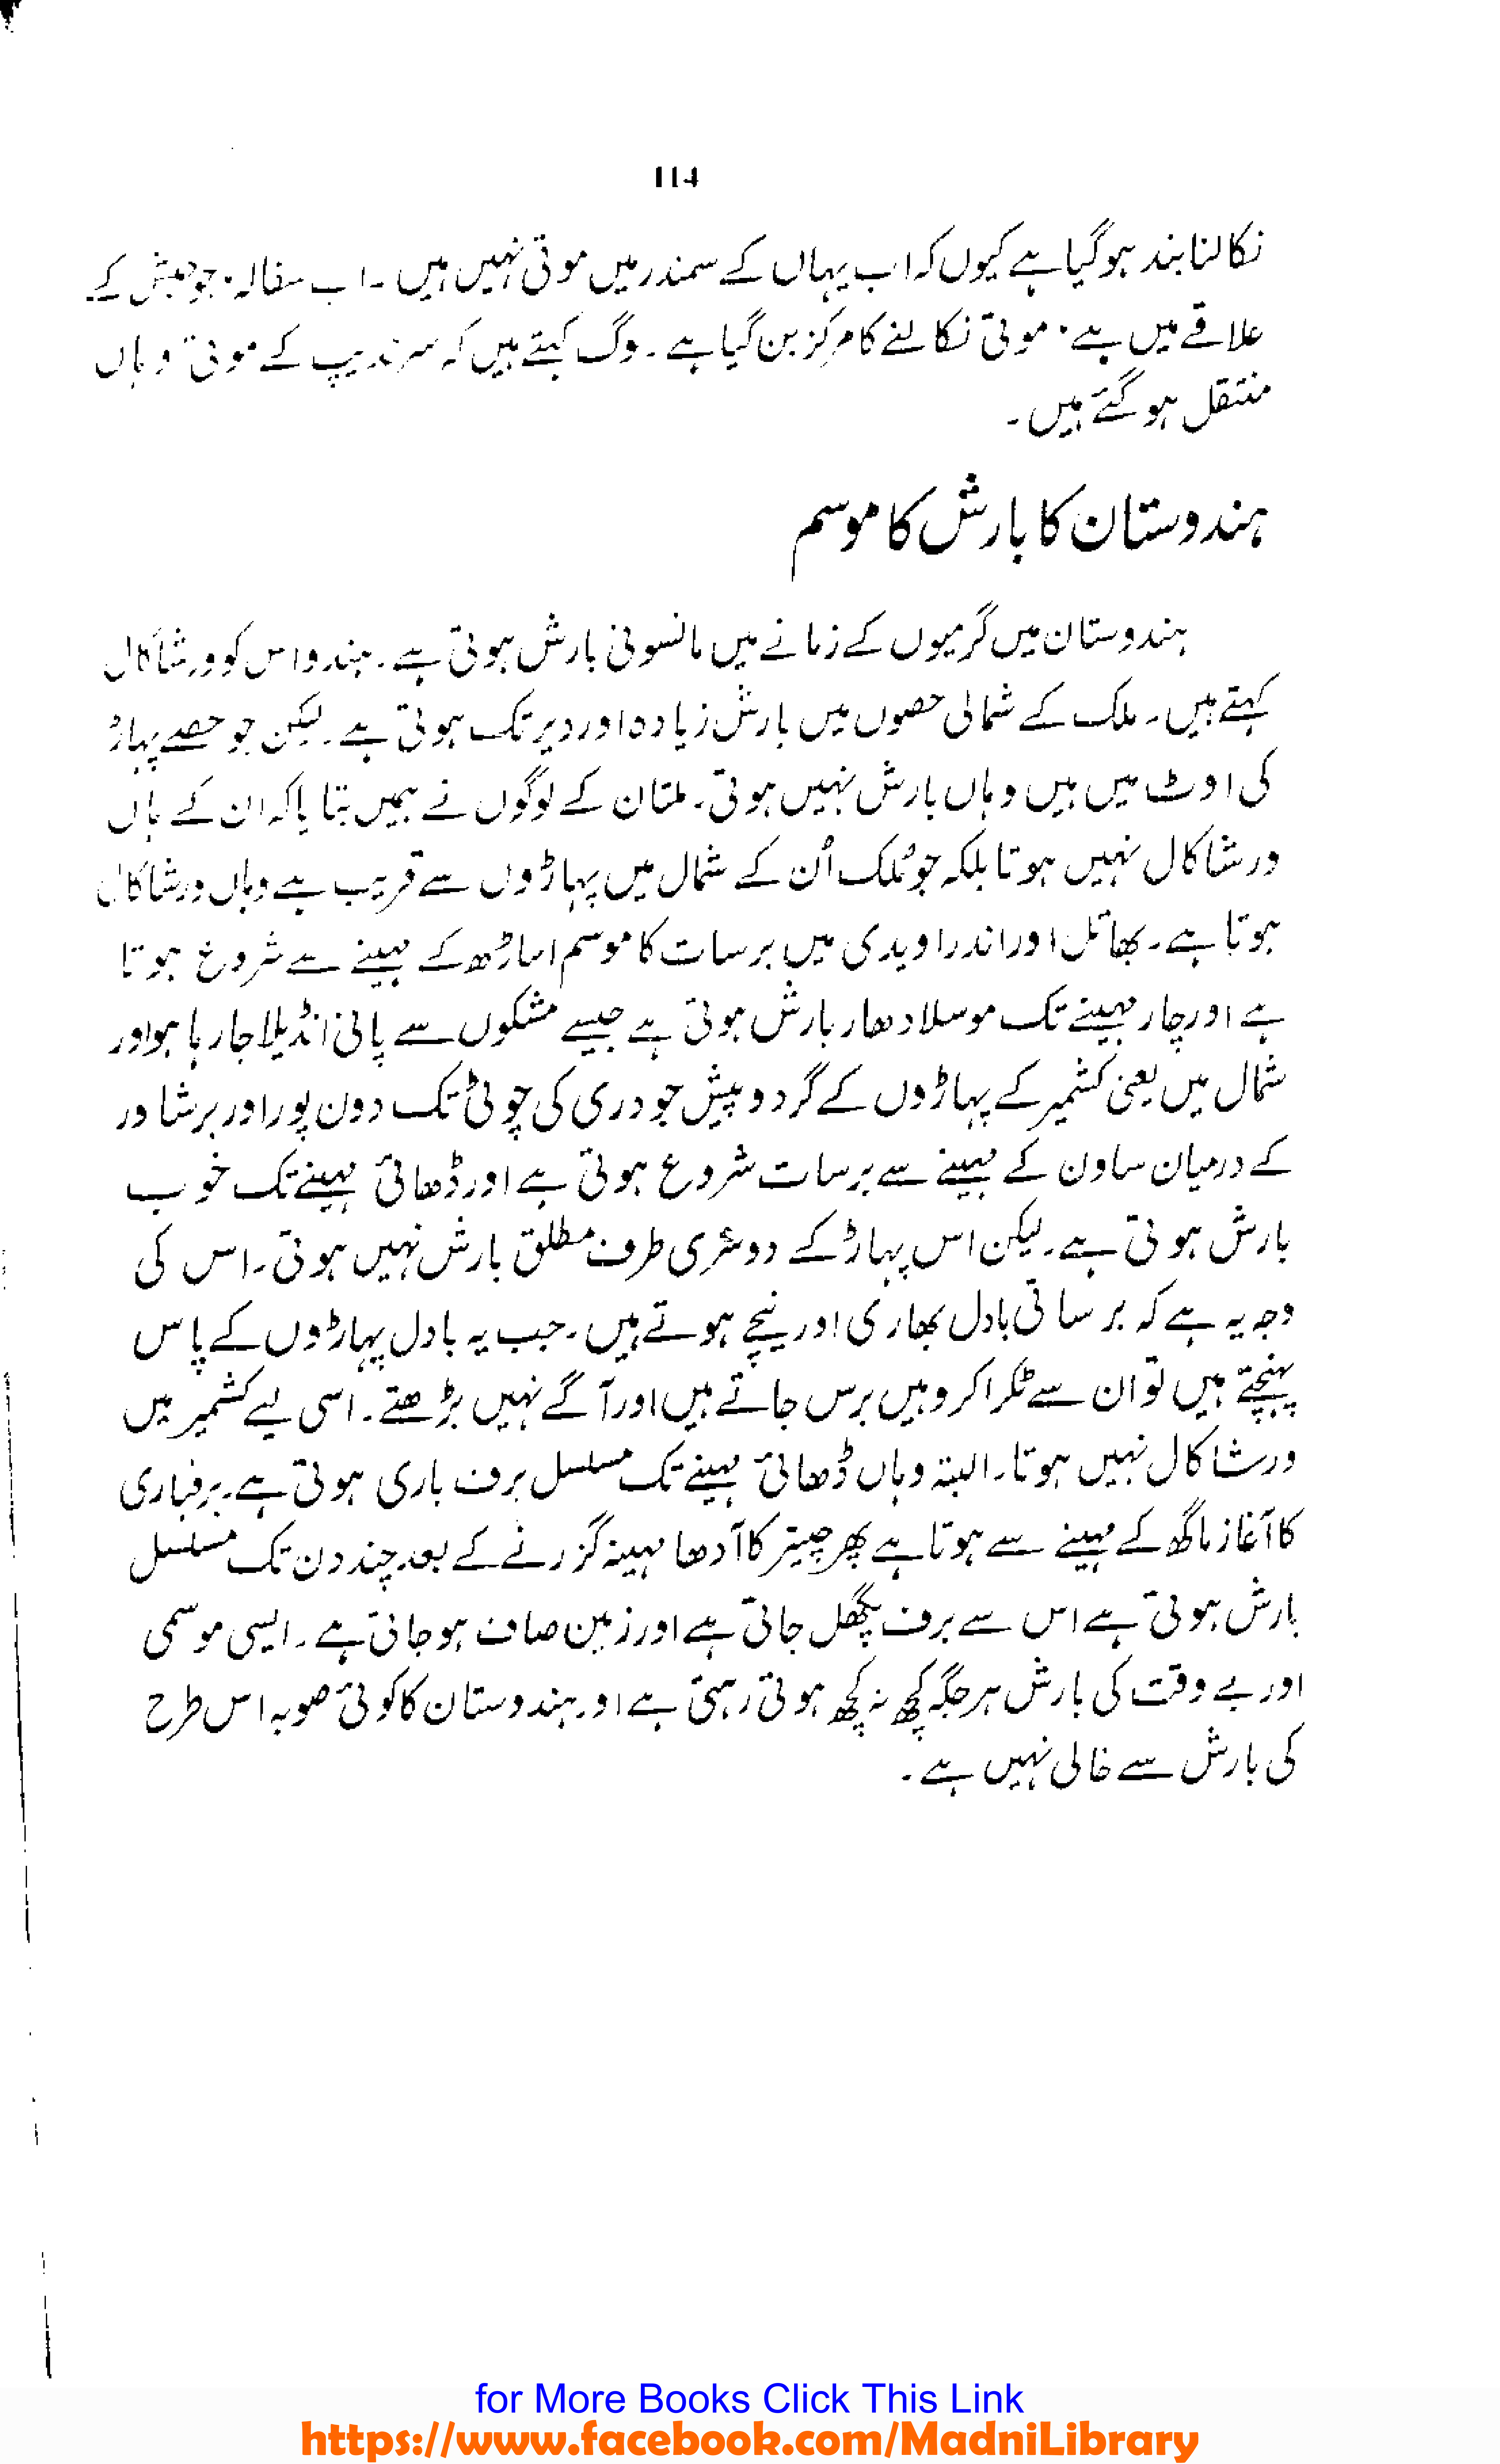 114
نکالنا بند ہو گیا ہے کیوں کہ اب یہاں کے سمندر میں موتی نہیں ہیں ۔ اب سفالہ، جو حبش کے
علاقے میں ہے، موتی نکالنے کا مرکز بن گیا ہے ۔ لوگ کہتے ہیں کہ سرندیپ کے موتی وہاں
منتقل ہو گئے ہیں ۔
ہندوستان کا بارش کا موسم
ہندوستان میں گرمیوں کے زمانے میں مانسونی بارش ہوتی ہے ۔ ہندو اس کو ورشاکال
کہتے ہیں ۔ ملک کے شمالی حصوں میں بارش زیادہ اور دیر تک ہوتی ہے ۔ لیکن جو حصے پہاڑ
کی اوٹ میں ہیں وہاں بارش نہیں ہوتی ۔ ملتان کے لوگوں نے ہمیں بتایا کہ ان کے ہاں
ورشاکال نہیں ہوتا بلکہ جو مُلک اُن کے شمال میں پہاڑوں سے قریب ہے وہاں ورشاکال
ہوتا ہے ۔ بھاتل اور اندراویدی میں برسات کا موسم اساڑھ کے مہینے سے شروع ہوتا
ہے اور چار مہینے تک موسلا دھار بارش ہوتی ہے جیسے مشکوں سے پانی انڈیلا جا رہا ہو اور
شمال میں یعنی کشمیر کے پہاڑوں کے گرد و پیش جودری کی چوٹی تک دون پور اور برشاور
کے درمیان ساون کے مہینے سے برسات شروع ہوتی ہے اور ڈھائی مہینے تک خوب
بارش ہوتی ہے ۔ لیکن اس پہاڑ کے دوسری طرف مطلق بارش نہیں ہوتی ۔ اس کی
وجہ یہ ہے کہ برساتی بادل بھاری اور نیچے ہوتے ہیں ۔ جب یہ بادل پہاڑوں کے پاس
پہنچتے ہیں تو ان سے ٹکرا کر وہیں برس جاتے ہیں اور آگے نہیں بڑھتے ۔ اسی لیے کشمیر میں
ورشاکال نہیں ہوتا ۔ البتہ وہاں ڈھائی مہینے تک مسلسل برف باری ہوتی ہے ۔ برفباری
کا آغاز ماگھ کے مہینے سے ہوتا ہے پھر چیتر کا آدھا مہینہ گزرنے کے بعد چند دن تک مسلسل
بارش ہوتی ہے اس سے برف پگھل جاتی ہے اور زمین صاف ہو جاتی ہے ۔ ایسی موسمی
اور بے وقت کی بارش ہر جگہ کچھ نہ کچھ ہوتی رہتی ہے اور ہندوستان کا کوئی صوبہ اس طرح
کی بارش سے خالی نہیں ہے ۔
for More Books Click This Link
https://www.facebook.com/MadniLibrary